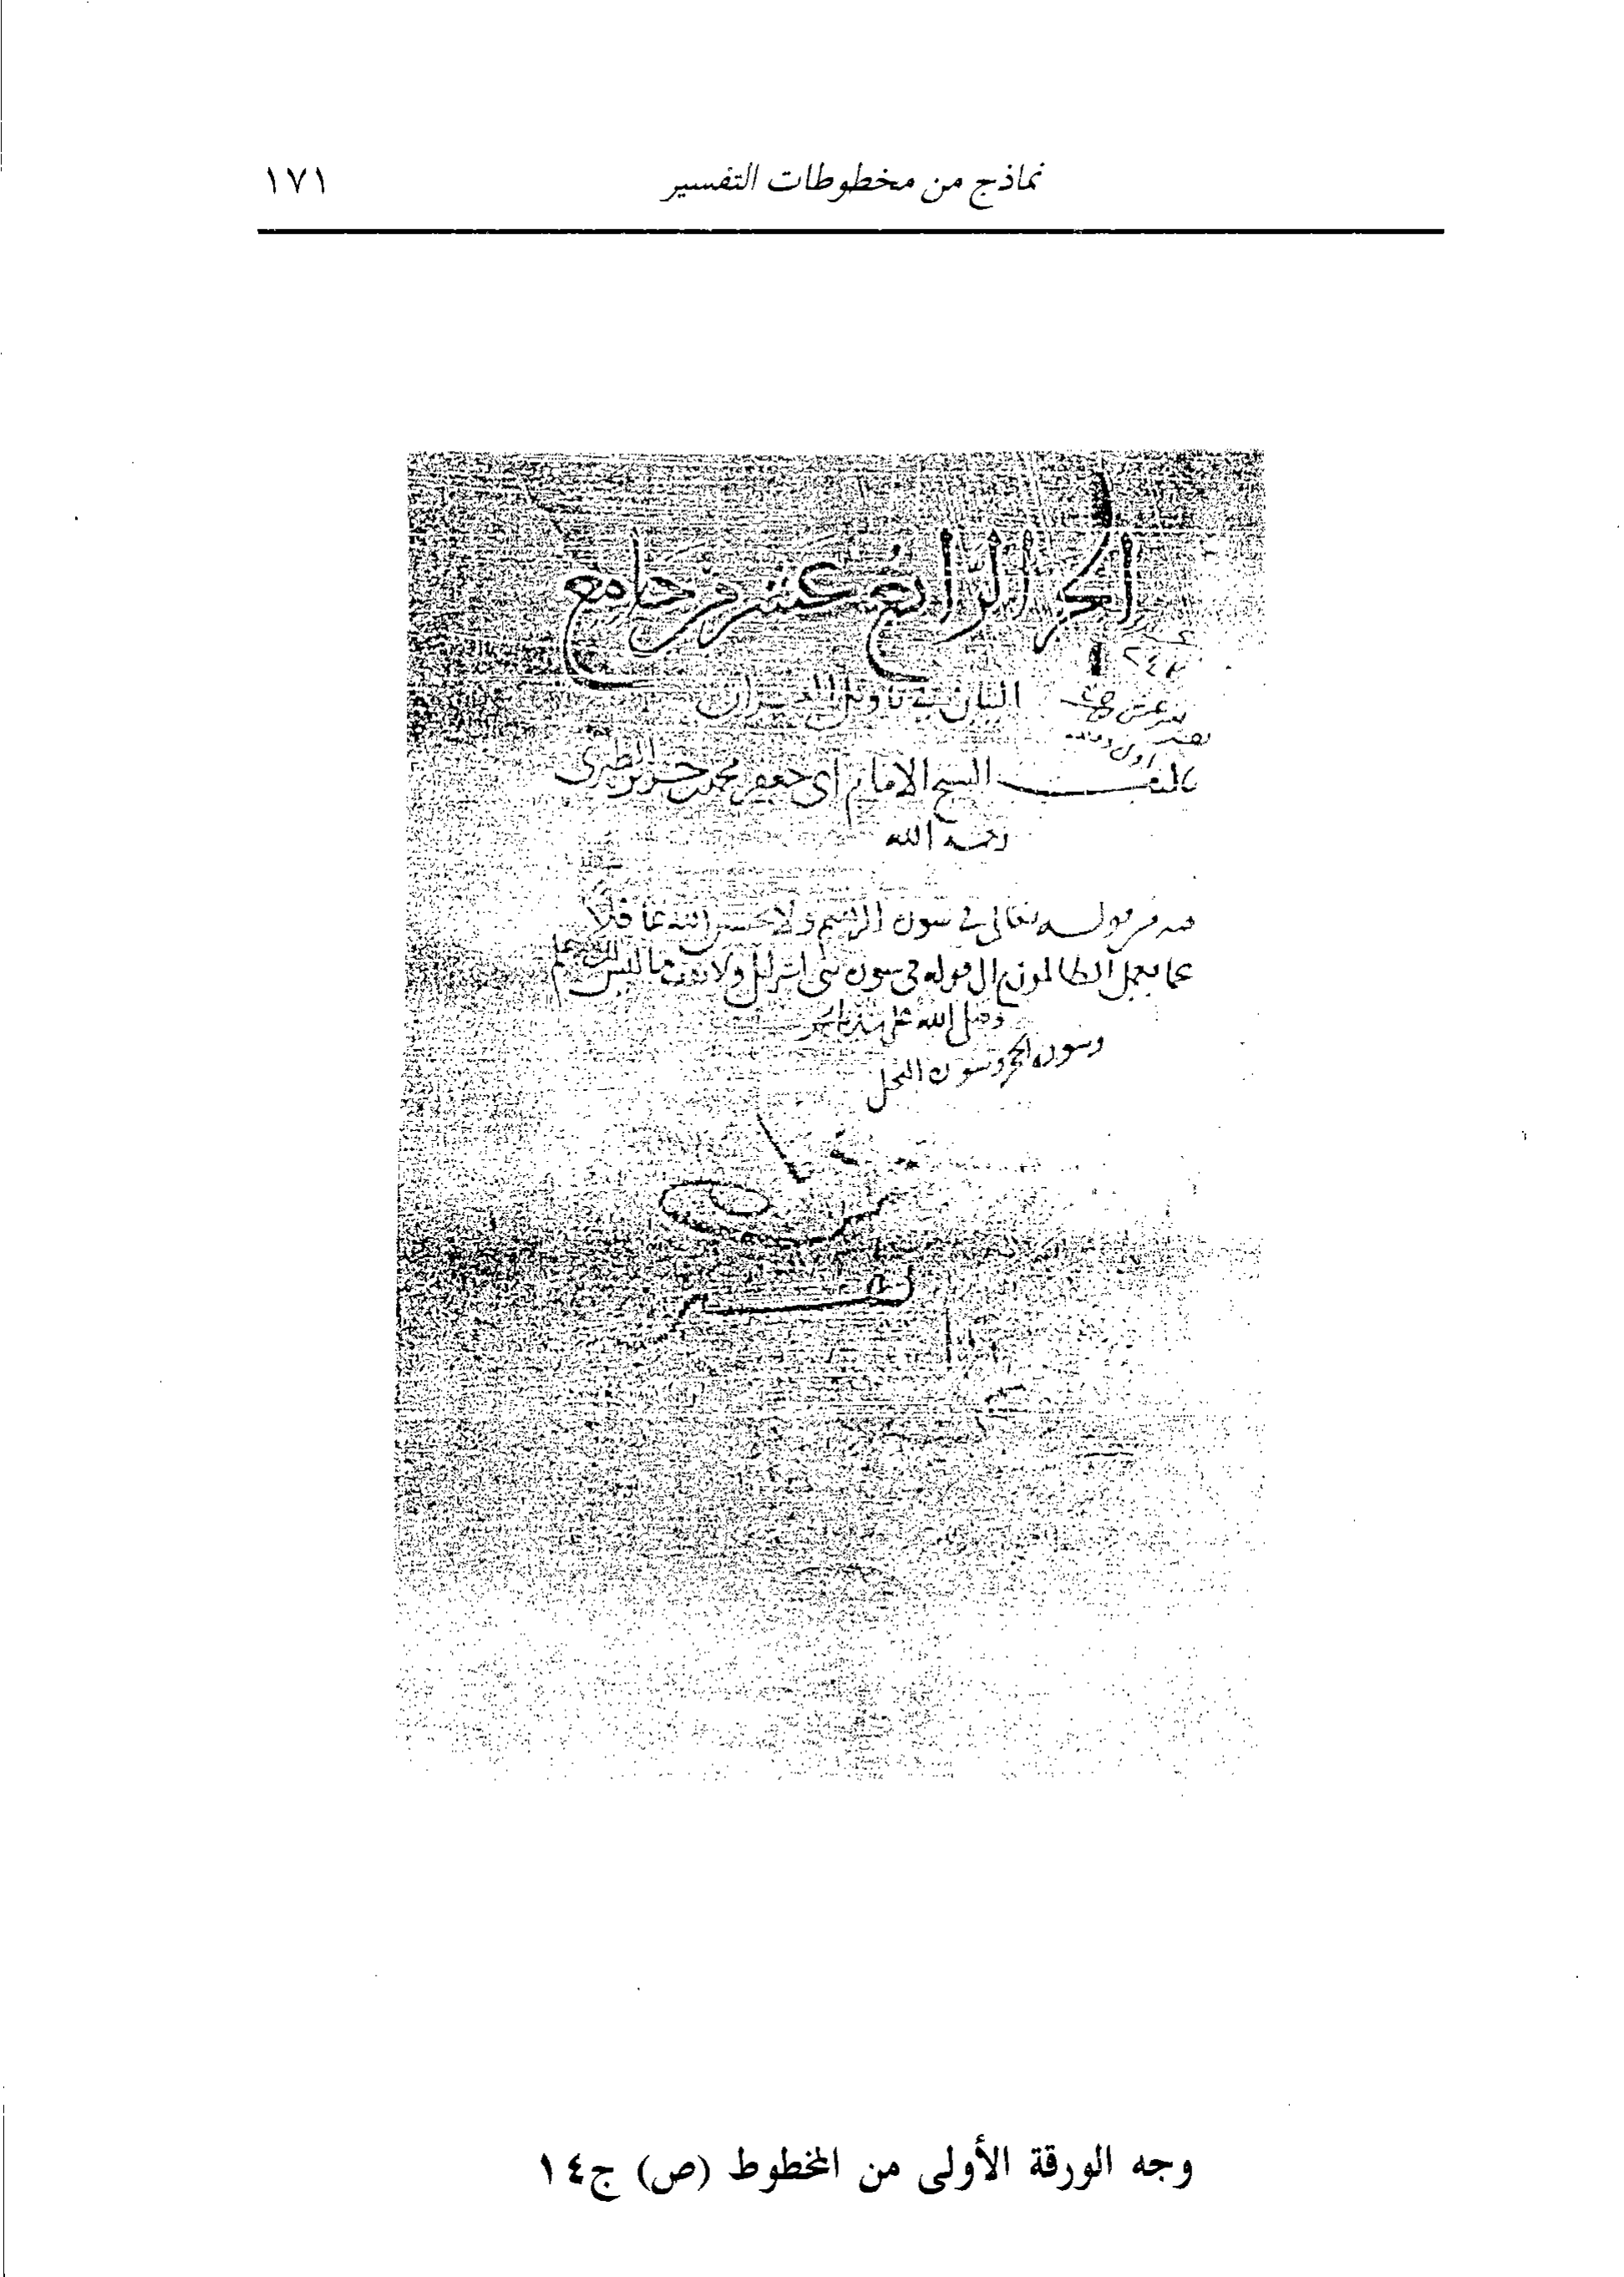 نماذج من مخطوطات التفسير
١٧١
الجز الرابع عشر من جامع
البيان في تاويل القران
تاليف الشيخ الامام ابي جعفر محمد بن جرير الطبري
رحمه الله
فيه من قوله تعالى في سورة ابرهيم ولا تحسبن الله غافلا
عما يعمل الظالمون الى قوله في سورة بني اسرايل ولا تقف ما ليس لك به علم
وسورة الحجر وسورة النحل
وجه الورقة الأولى من المخطوط (ص) ج١٤